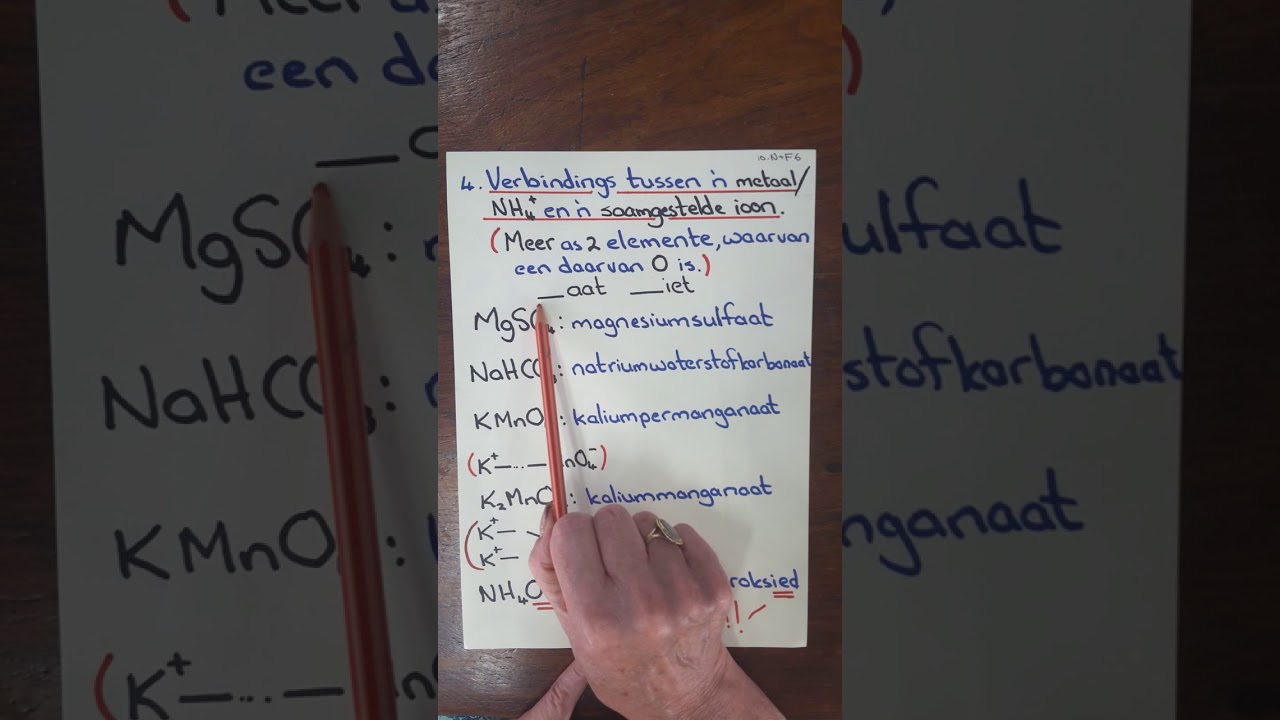 10.N+F6
4. Verbindings tussen 'n metaal/
NH₄⁺ en 'n saamgestelde ioon.
(Meer as 2 elemente, waarvan
een daarvan O is.)
__aat __iet
MgSO₄: magnesiumsulfaat
NaHCO₃: natriumwaterstofkarbonaat
KMnO : kaliumpermanganaat
(K⁺—...— nO₄⁻)
K₂MnO : kaliummanganaat
(K⁺—
K⁺—
NH₄O roksied
!!